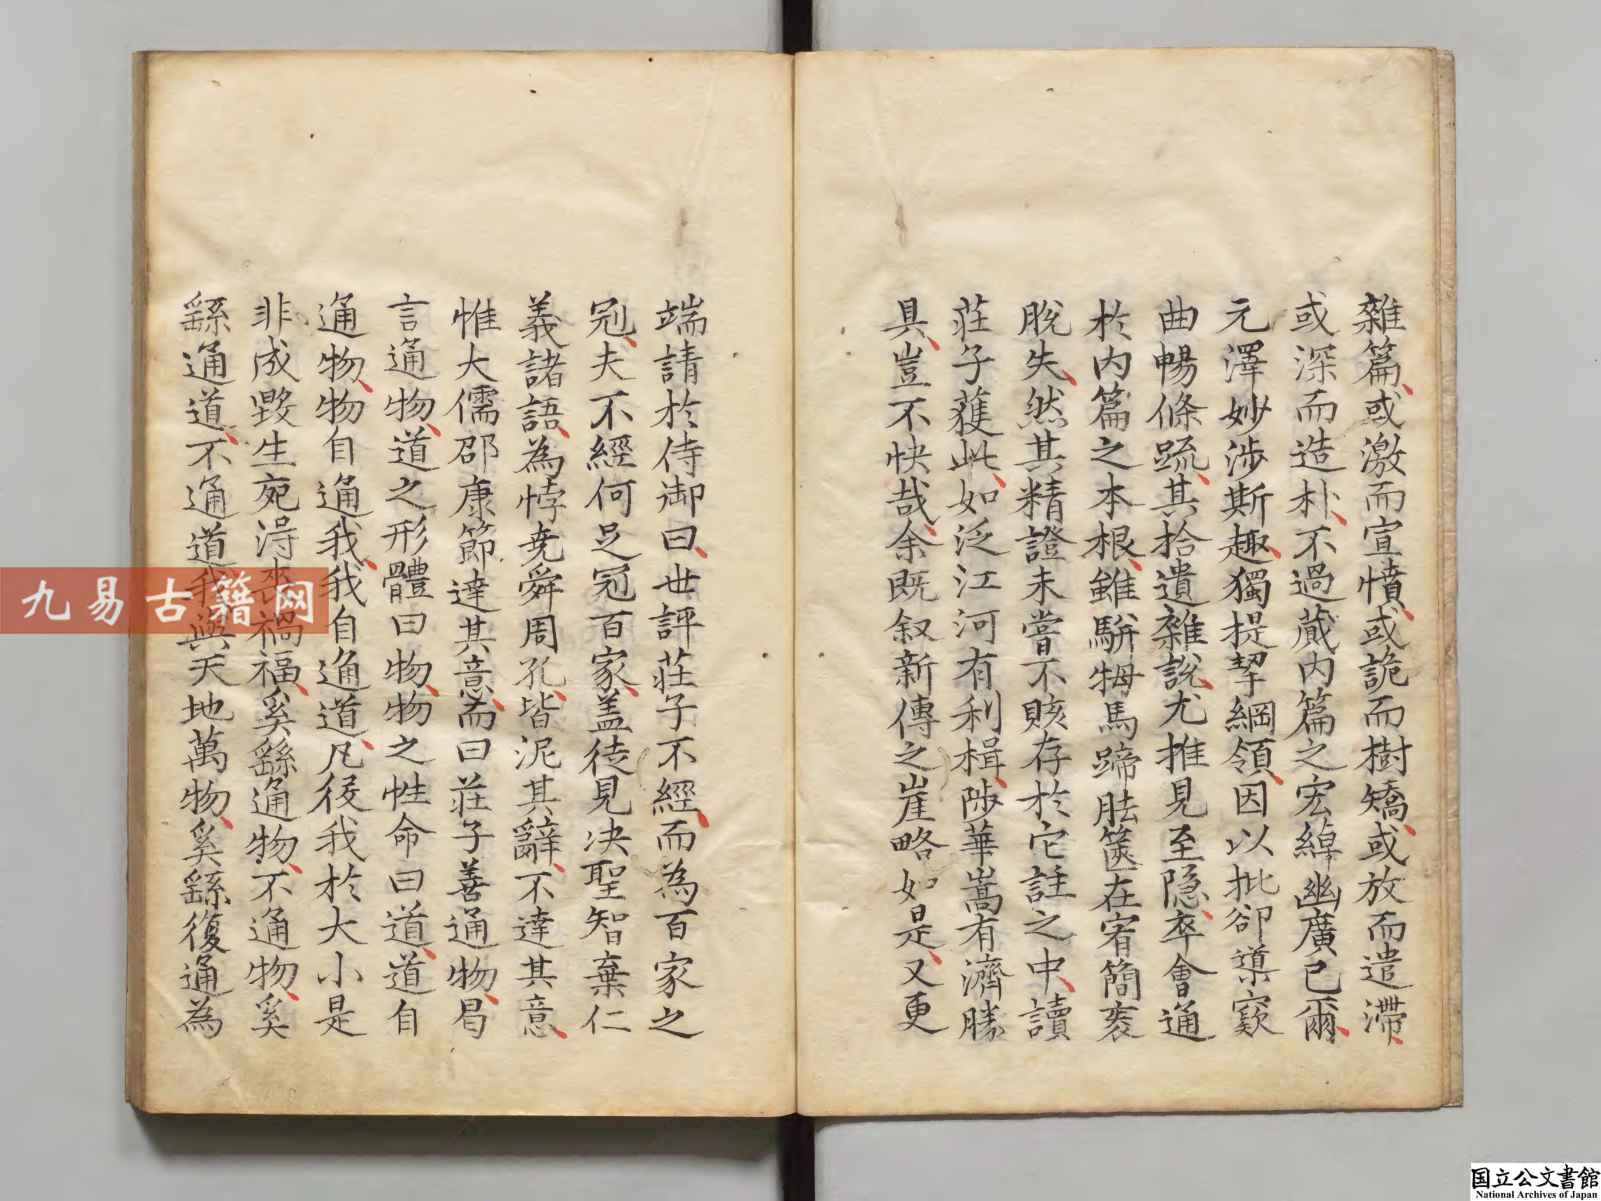 雜篇或激而宣憤或詭而樹矯或放而遣滯
或深而造朴不過蔵内篇之宏綽幽廣已爾
元澤妙渉斯趣獨提挈綱領因以批郤導窾
曲暢條疏其拾遺雜說尤推見至隐卒會通
於内篇之本根雖駢拇馬蹄胠篋在宥簡袠
脫失然其精證未嘗不賅存於它註之中讀
莊子蒦此如泛江河有利楫陟華嵩有濟勝
具豈不快哉余既叙新傳之崖略如是又更
端請於侍御曰世評莊子不經而為百家之
冠夫不經何足冠百家盖徒見决聖智棄仁
義諸語為悖尭舜周孔皆泥其辭不達其意
惟大儒邵康節達其意而曰莊子善通物曷
言通物道之形體曰物物之性命曰道道自
通物物自通我我自通道凡役我於大小是
非成毀生死淂丧禍福奚繇通物不通物奚
繇通道不通道我與天地萬物奚繇復通為
九易古籍网
国立公文書館
National Archives of Japan